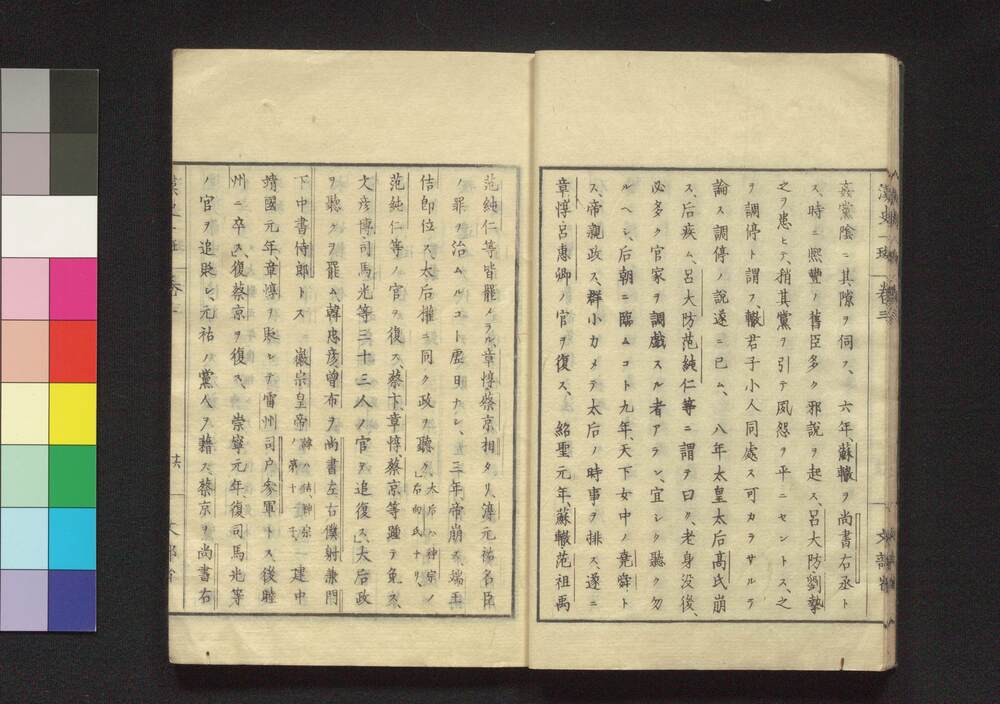 姦黨陰ニ其隙ヲ伺フ、六年、蘇轍ヲ尚書右丞ト
ス、時ニ熙豐ノ舊臣多ク邪說ヲ起ス、呂大防、劉摯
之ヲ患ヒテ、稍其黨ヲ引テ夙怨ヲ平ニセントス、之
ヲ調停ト謂フ、轍君子小人同處ス可カラサルヲ
論ス調停ノ說遂ニ已ム、八年太皇太后高氏崩
ス、后疾ム、呂大防范純仁等ニ謂テ曰ク、老身没後、
必多ク官家ヲ調戲スル者アラン、宜シク聽ク勿
ルヘシ、后朝ニ臨ムコト九年、天下女中ノ堯舜ト
ス、帝親政ス、群小力メテ太后ノ時事ヲ排ス、遂ニ
章惇呂惠卿ノ官ヲ復ス、紹聖元年蘇轍范祖禹
漢史一班 卷三
范純仁等皆罷メラル、章惇蔡京相タリ、專元祐名臣
ノ罪ヲ治ムルコト虚日ナシ、三年、帝崩ス、端王
佶即位ス、太后權ニ同ク政ヲ聽ク、太后ハ神宗ノ后向氏ナリ、
范純仁等ノ官ヲ復ス、蔡卞、章惇蔡京等踵テ免ス、
文彦博司馬光等三十三人ノ官ヲ追復ス、大后政
ヲ聽クヲ罷ム、韓忠彦曾布ヲ尚書左右僕射兼門
下中書侍郎トス 徽宗皇帝 諱ハ佶、神宗ノ第十一子、 建中
靖國元年、章惇ヲ貶シテ雷州司户參軍トス、後睦
州ニ卒ス、復蔡京ヲ復ス、崇寧元年、復司馬光等
ノ官ヲ追貶シ、元祐ノ黨人ヲ籍ス、蔡京ヲ尚書右